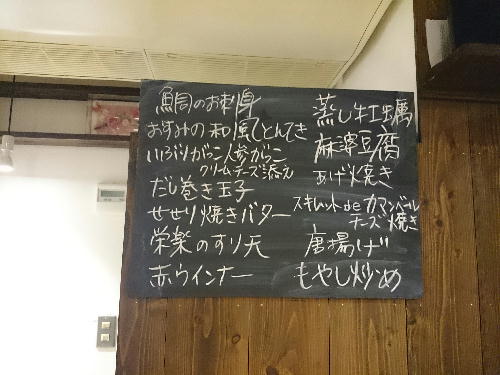 鯛のお刺身
おすみの和風とんてき
いぶりがっこ人参がっこ
クリームチーズ添え
だし巻き玉子
せせり焼きバター
栄楽のすり天
赤ウインナー
蒸し牡蠣
麻婆豆腐
あげ焼き
スキレットdeカマンベール
チーズ焼き
唐揚げ
もやし炒め